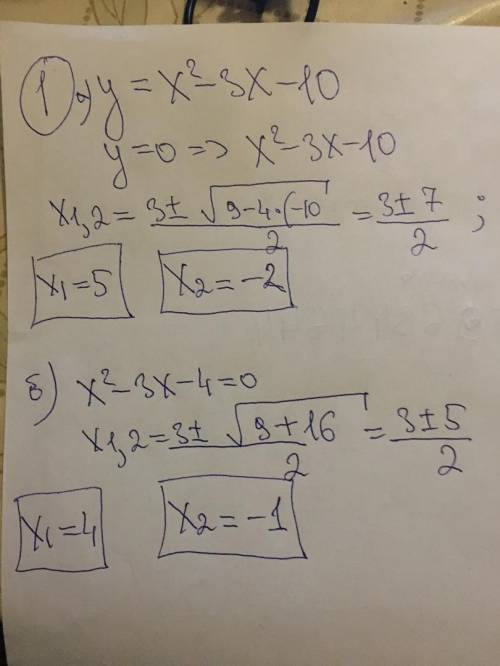 1 а) y = x² - 3x - 10
y = 0 => x² - 3x - 10
x1,2 = 3 ± √9-4·(-10 / 2 = 3 ± 7 / 2 ;
x1 = 5 x2 = -2
б) x² - 3x - 4 = 0
x1,2 = 3 ± √9 + 16 / 2 = 3 ± 5 / 2
x1 = 4 x2 = -1